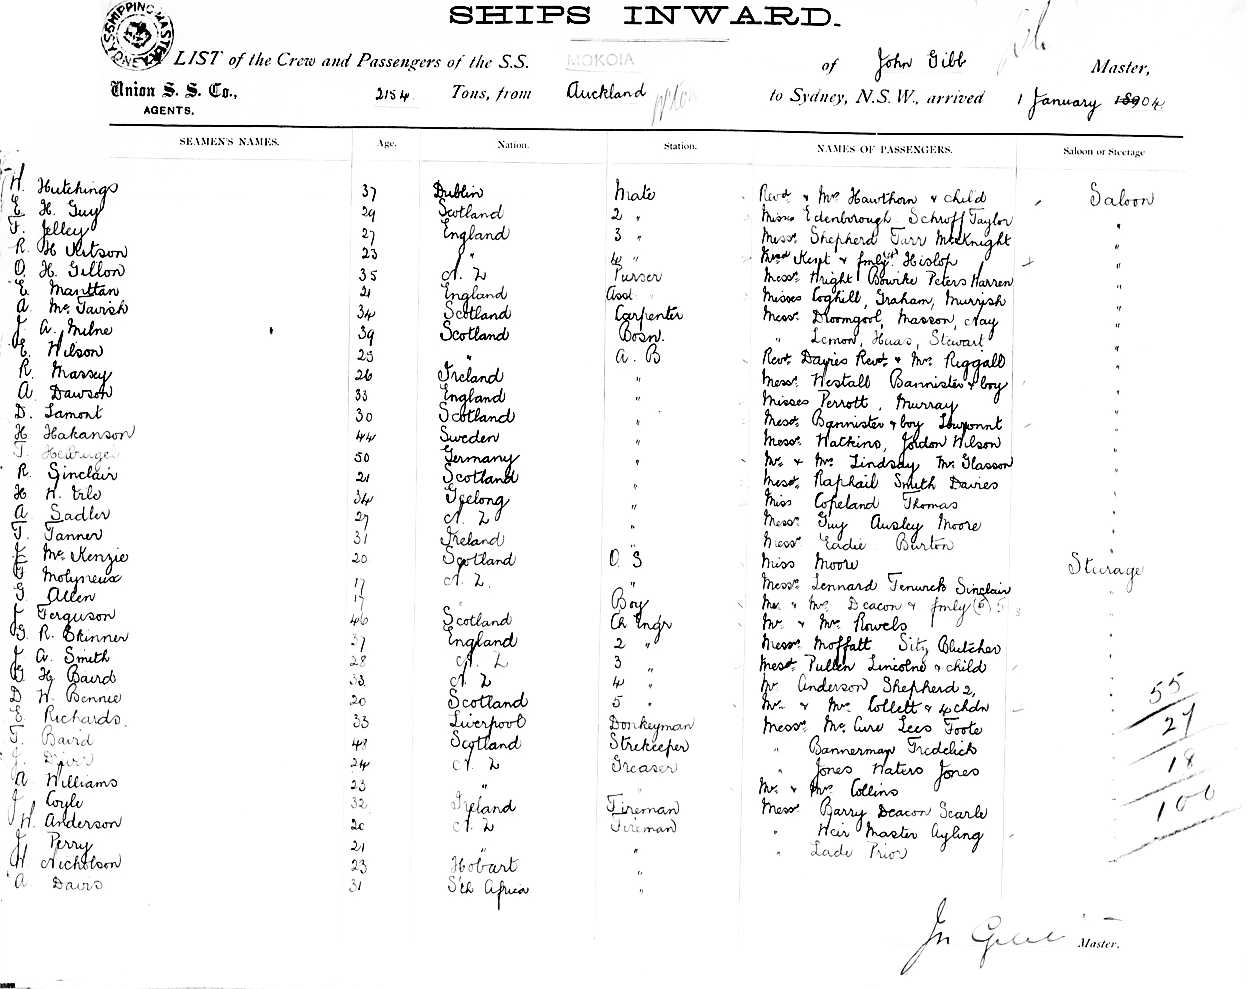 SHIPS INWARD.
SHIPPING MASTER SYDNEY
LIST of the Crew and Passengers of the S.S. MOKOIA of John Gibb Master,
Union S. S. Co., AGENTS. 2154 Tons, from Auckland to Sydney, N.S.W., arrived 1 January 18904
SEAMEN'S NAMES. Age. Nation. Station. NAMES OF PASSENGERS. Saloon or Steerage
H. Hutchings 37 Dublin Mate Revd & Mrs Hawthorn & child Saloon
E. H. Guy 29 Scotland 2 " Misses Edenborough Schroff Taylor "
F. Jelley 27 England 3 " Messrs Shepherd Tarr McKnight "
R. H Kitson 23 " 4 " Kent & fmly Hislop "
O. H. Gillon 35 N. Z Purser Messrs Wright Bowike Peters Warren "
E. Manttan 21 England Asst Misses Coghill, Graham, Murrish "
A. McTavish 34 Scotland Carpenter Messrs Dromgool, Masson, Hay "
J A. Milne 39 Scotland Bosn. " Lemon, Haas, Stewart "
E. Wilson 25 " A. B Revd Davies Revd & Mrs Riggall "
R. Massey 26 Ireland " Messrs Westall Bannister & boy "
A Dawson 33 England " Misses Perrott, Murray "
D. Lamont 30 Scotland " Messrs Bannister & boy "
H Hakanson 44 Sweden " Messrs Watkins, Jordon Wilson "
T. 50 Germany " Mr & Mrs Lindsay Mr Glasson "
R. Sinclair 21 Scotland " Messrs Raphail Smith Davies "
H H. Vile 34 Geelong " Miss Copeland Thomas "
A Sadler 27 N. Z " Messrs Guy Ansley Moore "
T. Tanner 31 Ireland " Messrs Eadie Burton "
J McKenzie 20 Scotland O. S Miss Moore Sturage
G Molyneux 17 N. Z. " Messrs Lennard Fenwick Sinclair "
G Allen 17 " Boy Mr & Mrs Deacon & fmly (6) 5 "
J Ferguson 46 Scotland Ch Engr Mr & Mrs Rowels "
G. R. Skinner 37 England 2 " Messrs Moffatt Sitz Blutcher "
J A. Smith 28 N. Z 3 " Messrs Pullen Lincolne & child "
G H. Baird 33 N. Z 4 " Mr Anderson Shepherd 2, "
D W. Bennie 20 Scotland 5 " Mr & Mrs Collett & 4 chdn " 55
E. Richards. 33 Liverpool Donkeyman Messrs McCure Lees Foote " 27
T. Baird 47 Scotland Strekeeper " Bannerman Fredelick "
24 N. Z Greaser " Jones Waters Jones " 18
A Williams 23 " Mr & Mrs Collins "
J Coyle 32 Ireland Fireman Messrs Barry Deacon Searle " 100
W. Anderson 20 N. Z Fireman " Weir Master Ayling "
J. Perry 21 " " " Lade Prior "
W Nicholson 23 Hobart "
A Davis 31 Sth Africa "
Jn Gibb Master.